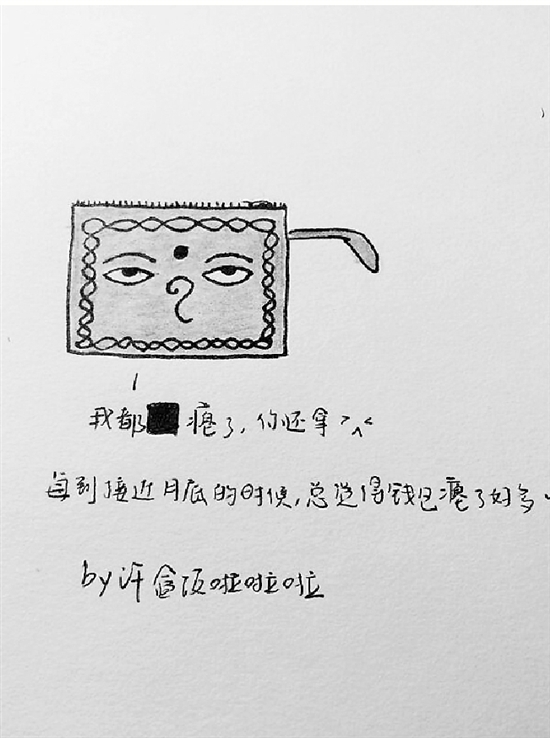 我都瘪了，你还拿>^<
每到接近月底的时候，总觉得钱包瘪了好多。
by许盒饭啦啦啦